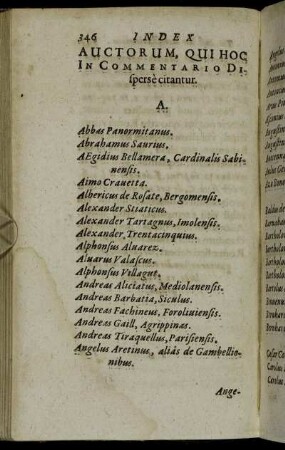 346 INDEX
AUCTORUM, QUI HOC
IN COMMENTARIO DI-
spersè citantur.
A.
Abbas Panormitanus.
Abrahamus Saurius.
AEgidius Bellamera, Cardinalis Sabi-
nensis.
Aimo Crauetta.
Albericus de Rosate, Bergomensis.
Alexander Stiaticus.
Alexander Tartagnus, Imolensis.
Alexander Trentacinquius.
Alphonsus Aluarez.
Aluarus Valascus.
Alphonsus Villagut.
Andreas Alciatus, Mediolanensis.
Andreas Barbatta, Siculus.
Andreas Fachineus, Foroliuiensis.
Andreas Gaill, Agrippinas.
Andreas Tiraquellus, Parisiensis.
Angelus Aretinus, aliàs de Gambellio-
nibus.
Ange-